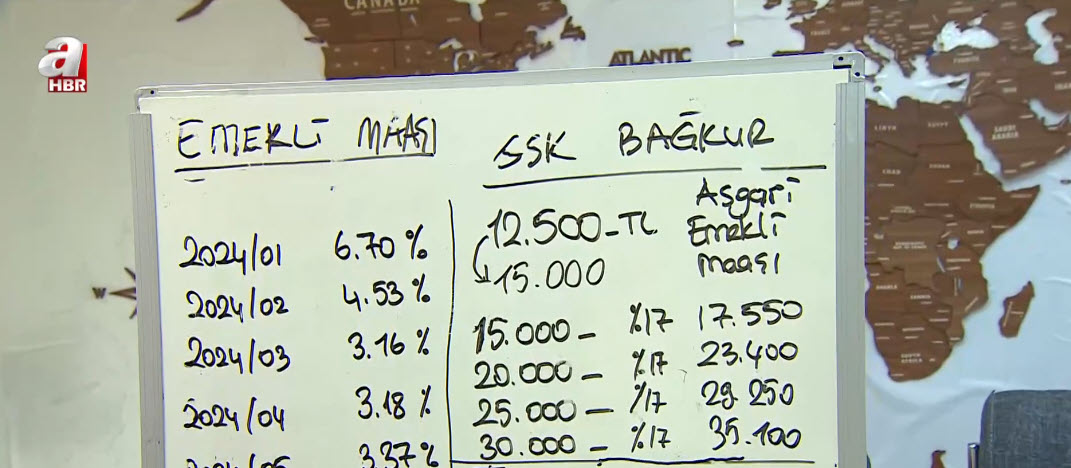 a
HBR
CANADA
ATLANTIC
EMEKLİ MAAŞI
2024/01 6.70 %
2024/02 4.53 %
2024/03 3.16 %
2024/04 3.18 %
2024/05 3.37 %
SSK BAĞKUR
12.500-TL Aşgari Emekli maaşı
15.000
15.000 - %17 17.550
20.000 - %17 23.400
25.000 - %17 29.250
30.000 - %17 35.100
W
LIBYA
EGYPT
SAUDI
ARABIA
SOUTH
AFRICA